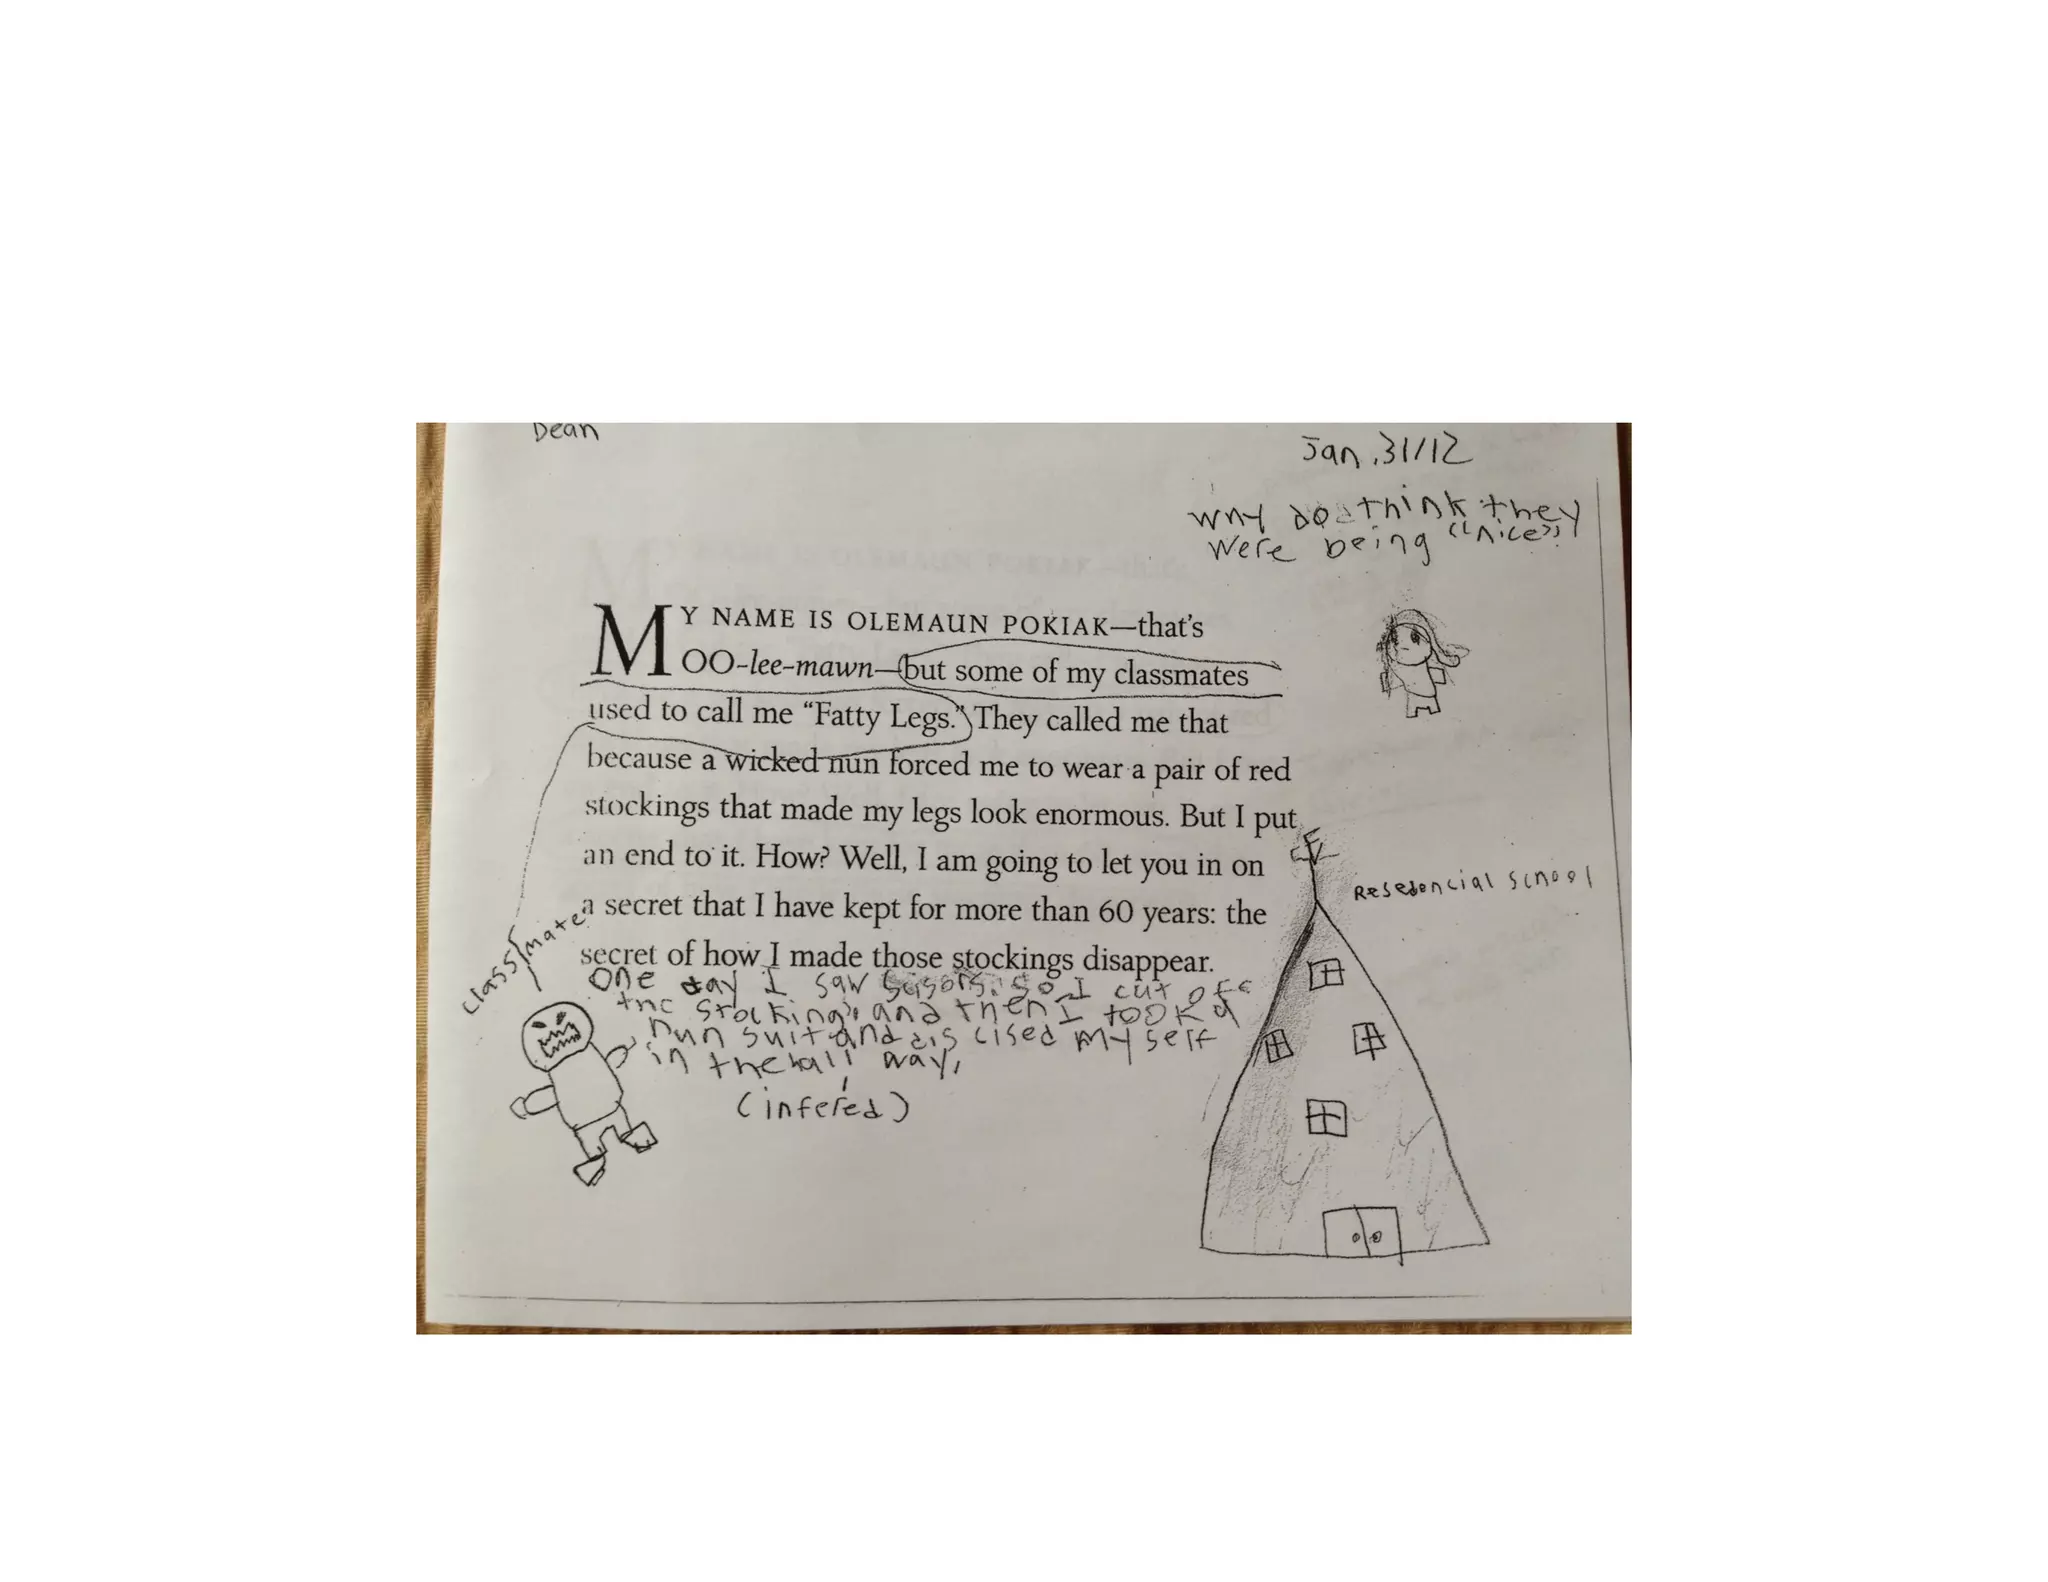 Dean
Jan. 31/12
Why do think they
were being "nice"?
MY NAME IS OLEMAUN POKIAK—that's
OO-lee-mawn—but some of my classmates
used to call me "Fatty Legs." They called me that
because a wicked nun forced me to wear a pair of red
stockings that made my legs look enormous. But I put
an end to it. How? Well, I am going to let you in on
a secret that I have kept for more than 60 years: the
secret of how I made those stockings disappear.
Resedencial school
classmate
One day I saw scisors. so I cut off
the stockings and then I took a
nun suit and discised myself
in the hall way.
(infered)